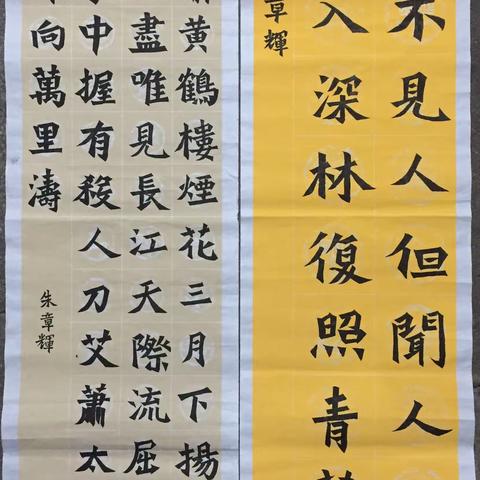 不見人但聞人
入深林復照青
章輝
黃鶴樓煙花三月下揚
盡唯見長江天際流屈
中握有殺人刀艾蕭太
向萬里濤
朱章輝